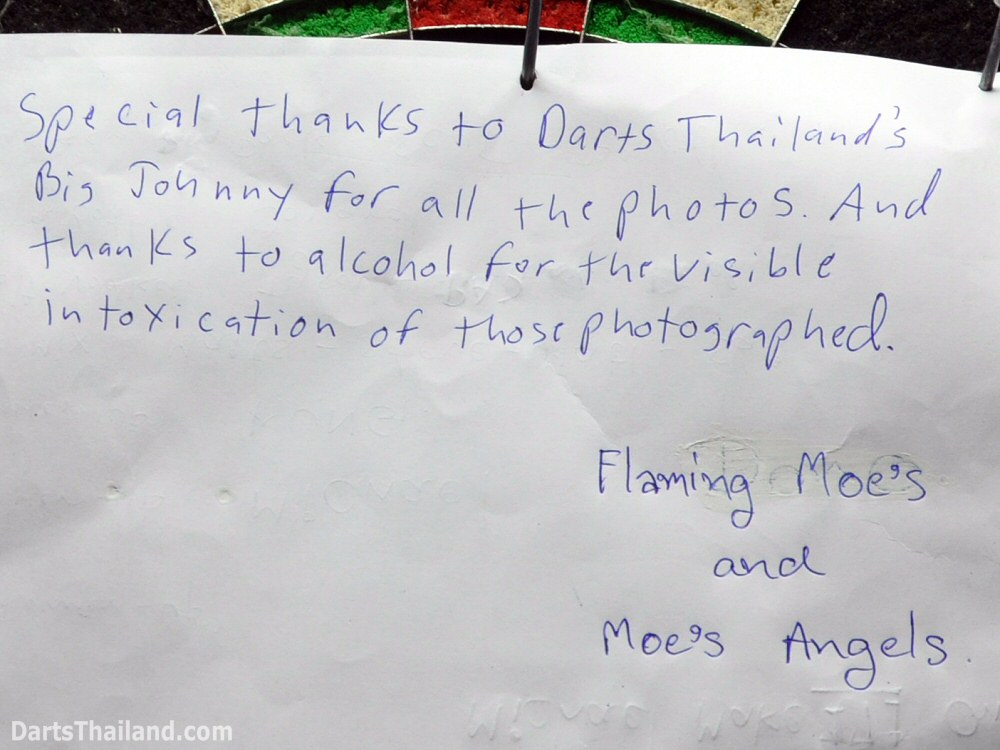 Special thanks to Darts Thailand's
Big Johnny for all the photos. And
thanks to alcohol for the visible
intoxication of those photographed.
Flaming Moe's
and
Moe's Angels.
DartsThailand.com